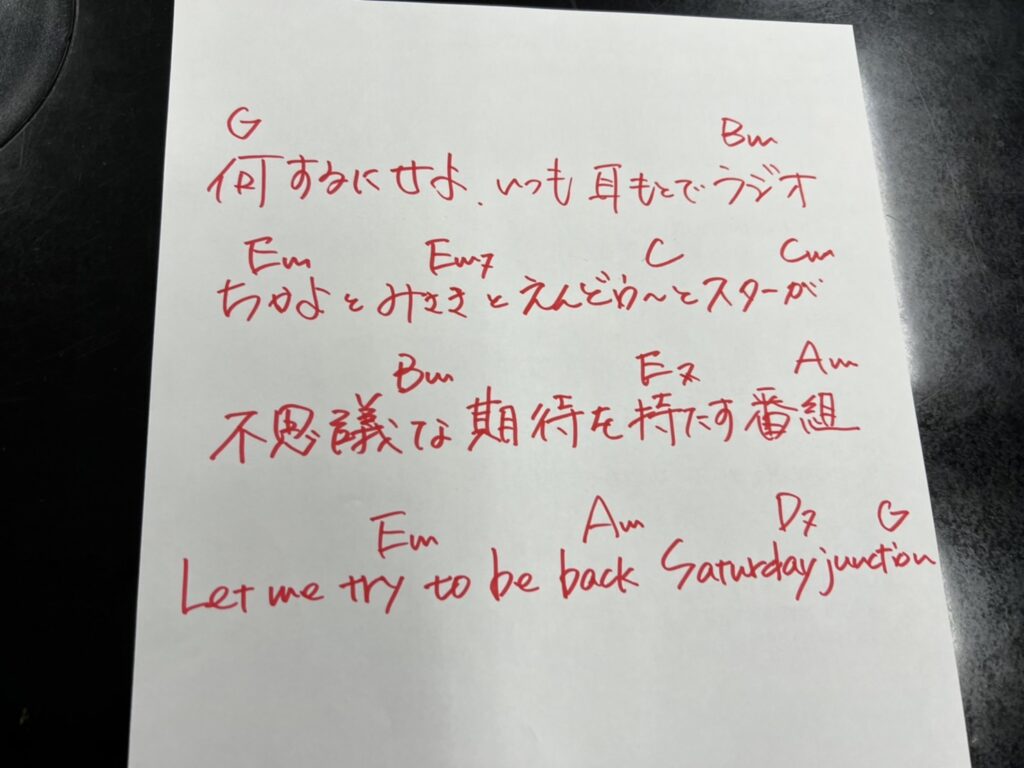 G Bm
何するにせよ、いつも耳もとでラジオ
Em Em7 C Cm
ちかよとみさきとえんどぅ〜とスターが
Bm E7 Am
不思議な期待を持たす番組
Em Am D7 G
Let me try to be back Saturday junction